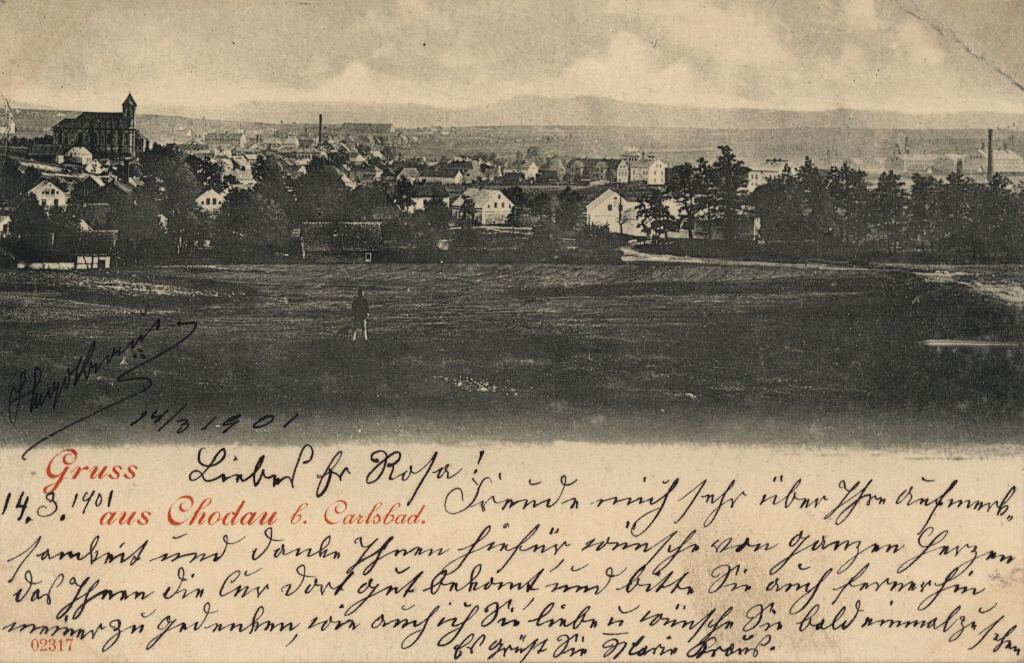 Hugo Kraus
14/3 1901
Gruss
Liebes Fr Rosa!
14.3.1901
aus Chodau b. Carlsbad.
Freude mich sehr über Ihre Aufmerk-
samkeit und danke Ihnen hiefür, wünsche von ganzen Herzen
das Ihnen die Cur dort gut bekomt, und bitte Sie auch fernerhin
meiner zu gedenken, wie auch ich Sie liebe u wünsche Sie bald einmal zu sehen
Es grüst Sie Marie Kraus.
02317